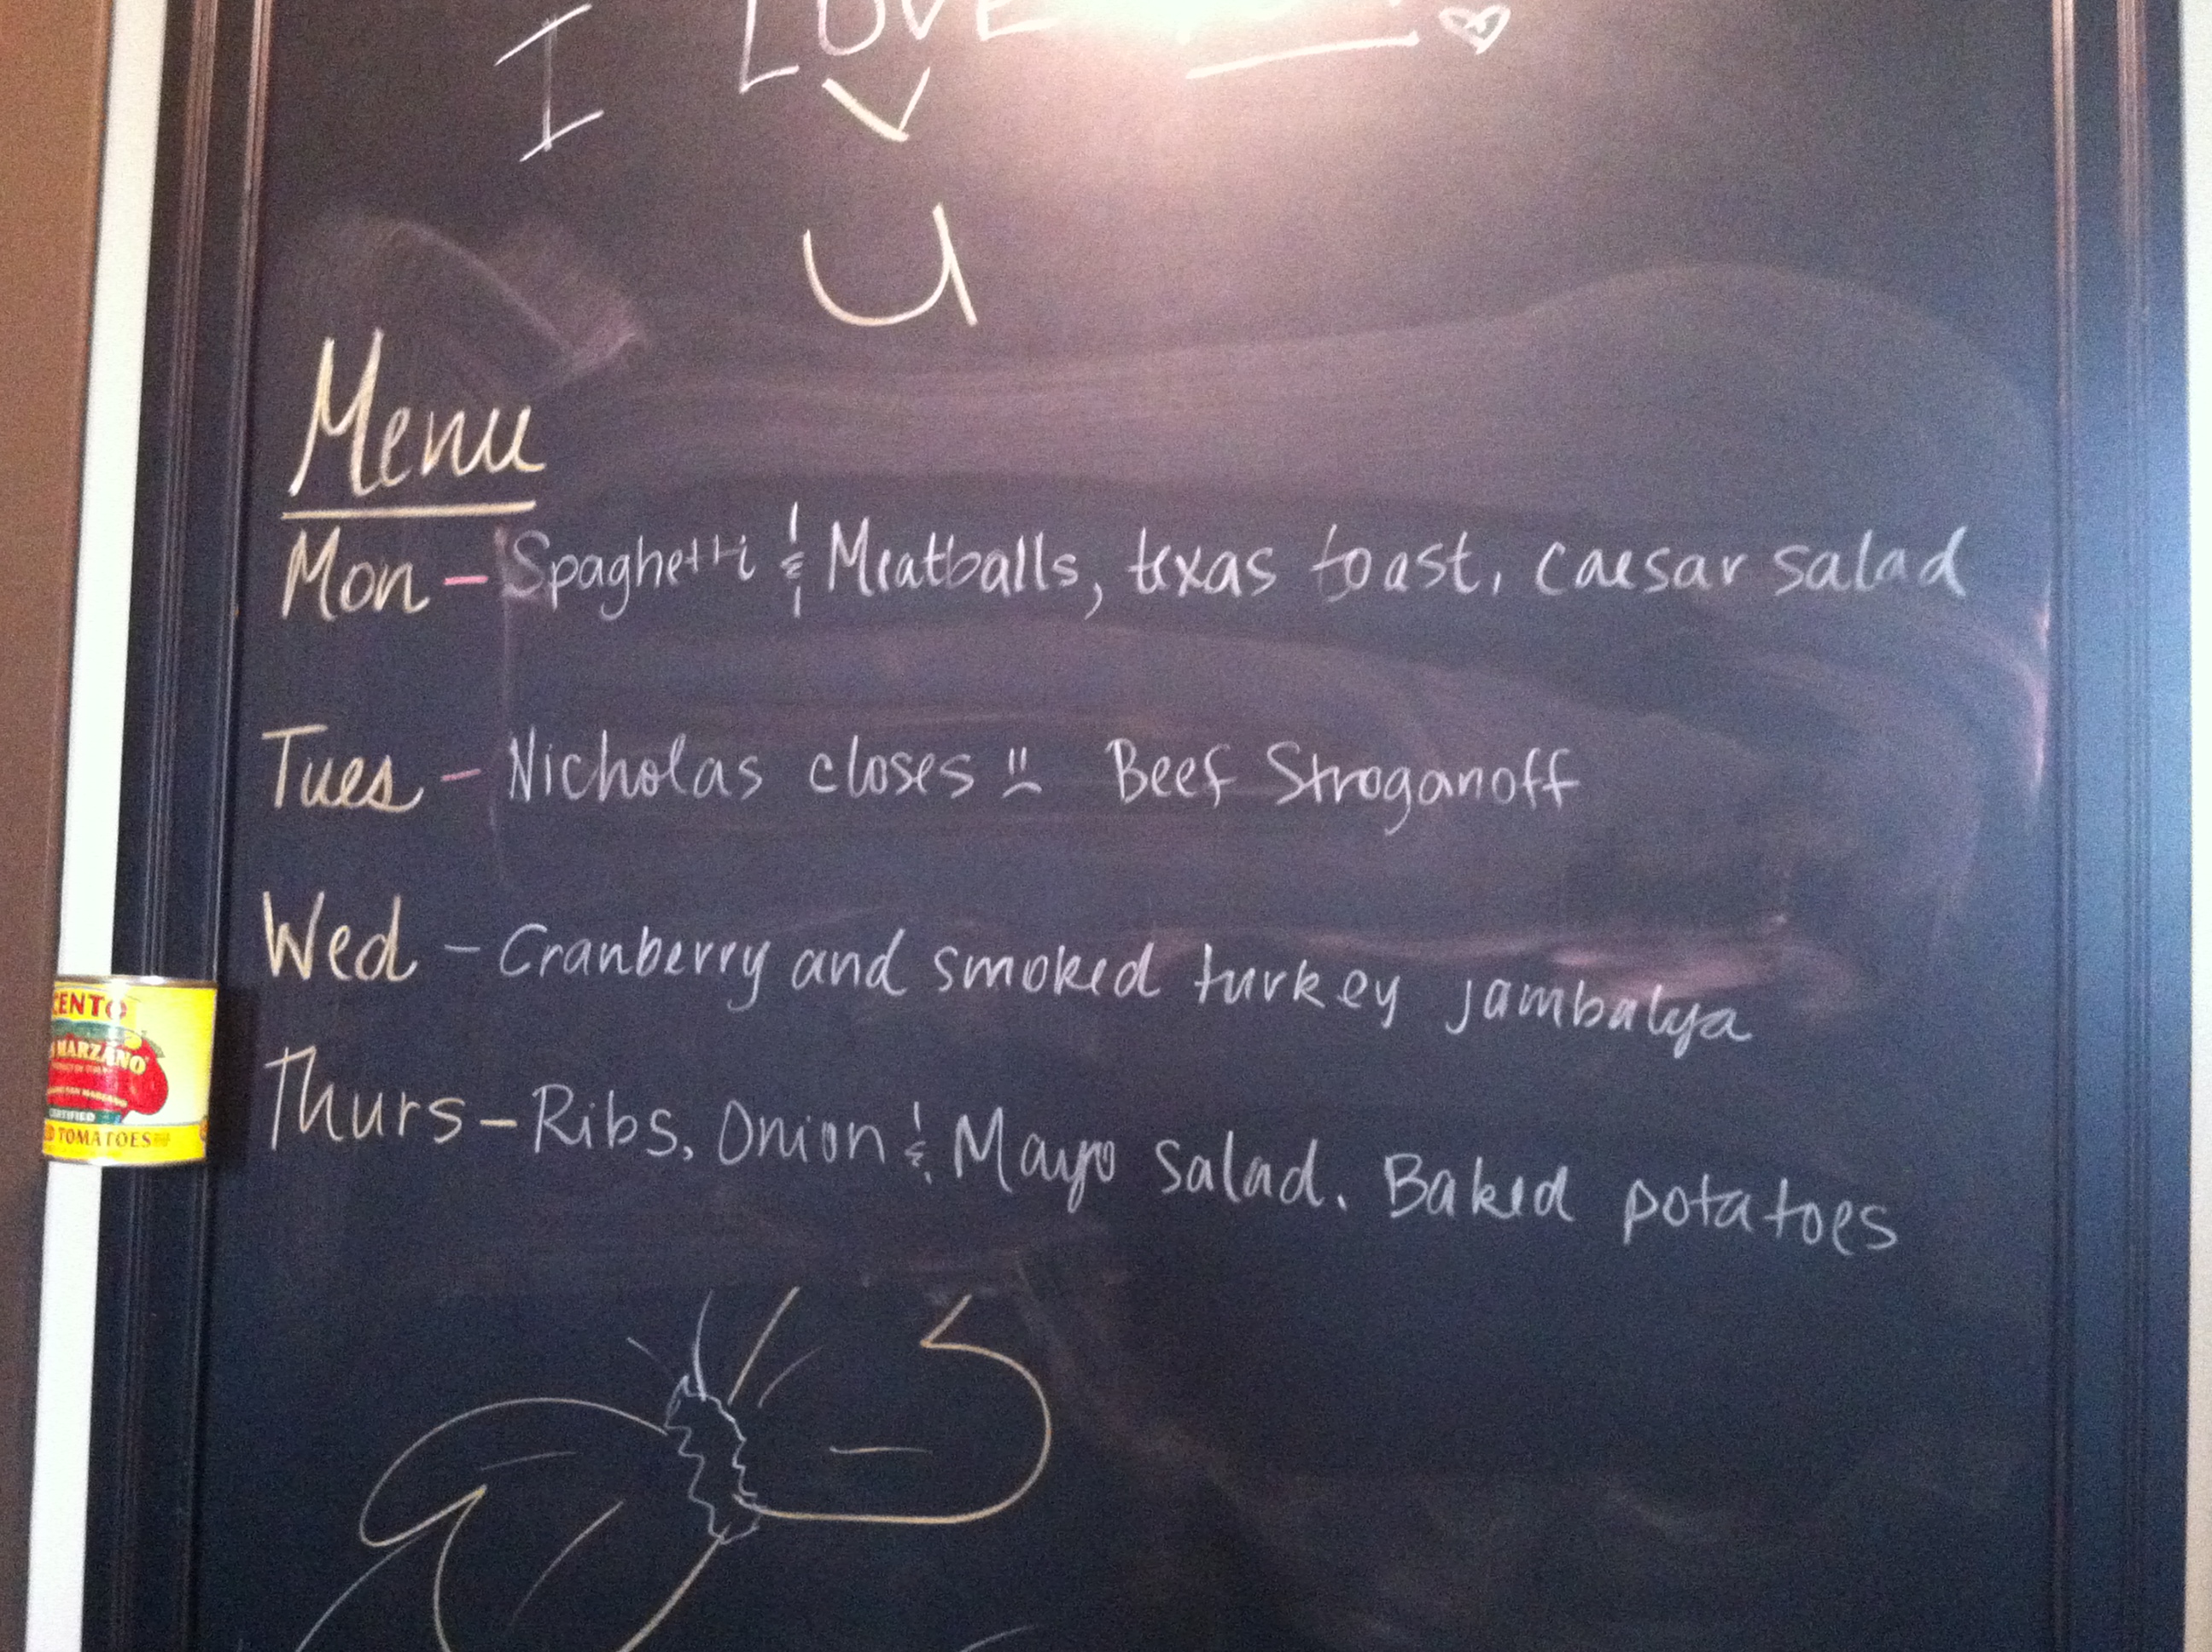 I LOVE
U
Menu
Mon - Spaghetti & Meatballs, texas toast, caesar salad
Tues - Nicholas closes :( Beef Stroganoff
Wed - Cranberry and smoked turkey jambalya
Thurs - Ribs, Onion & Mayo salad. Baked potatoes
CENTO
MARZANO
CERTIFIED
TOMATOES